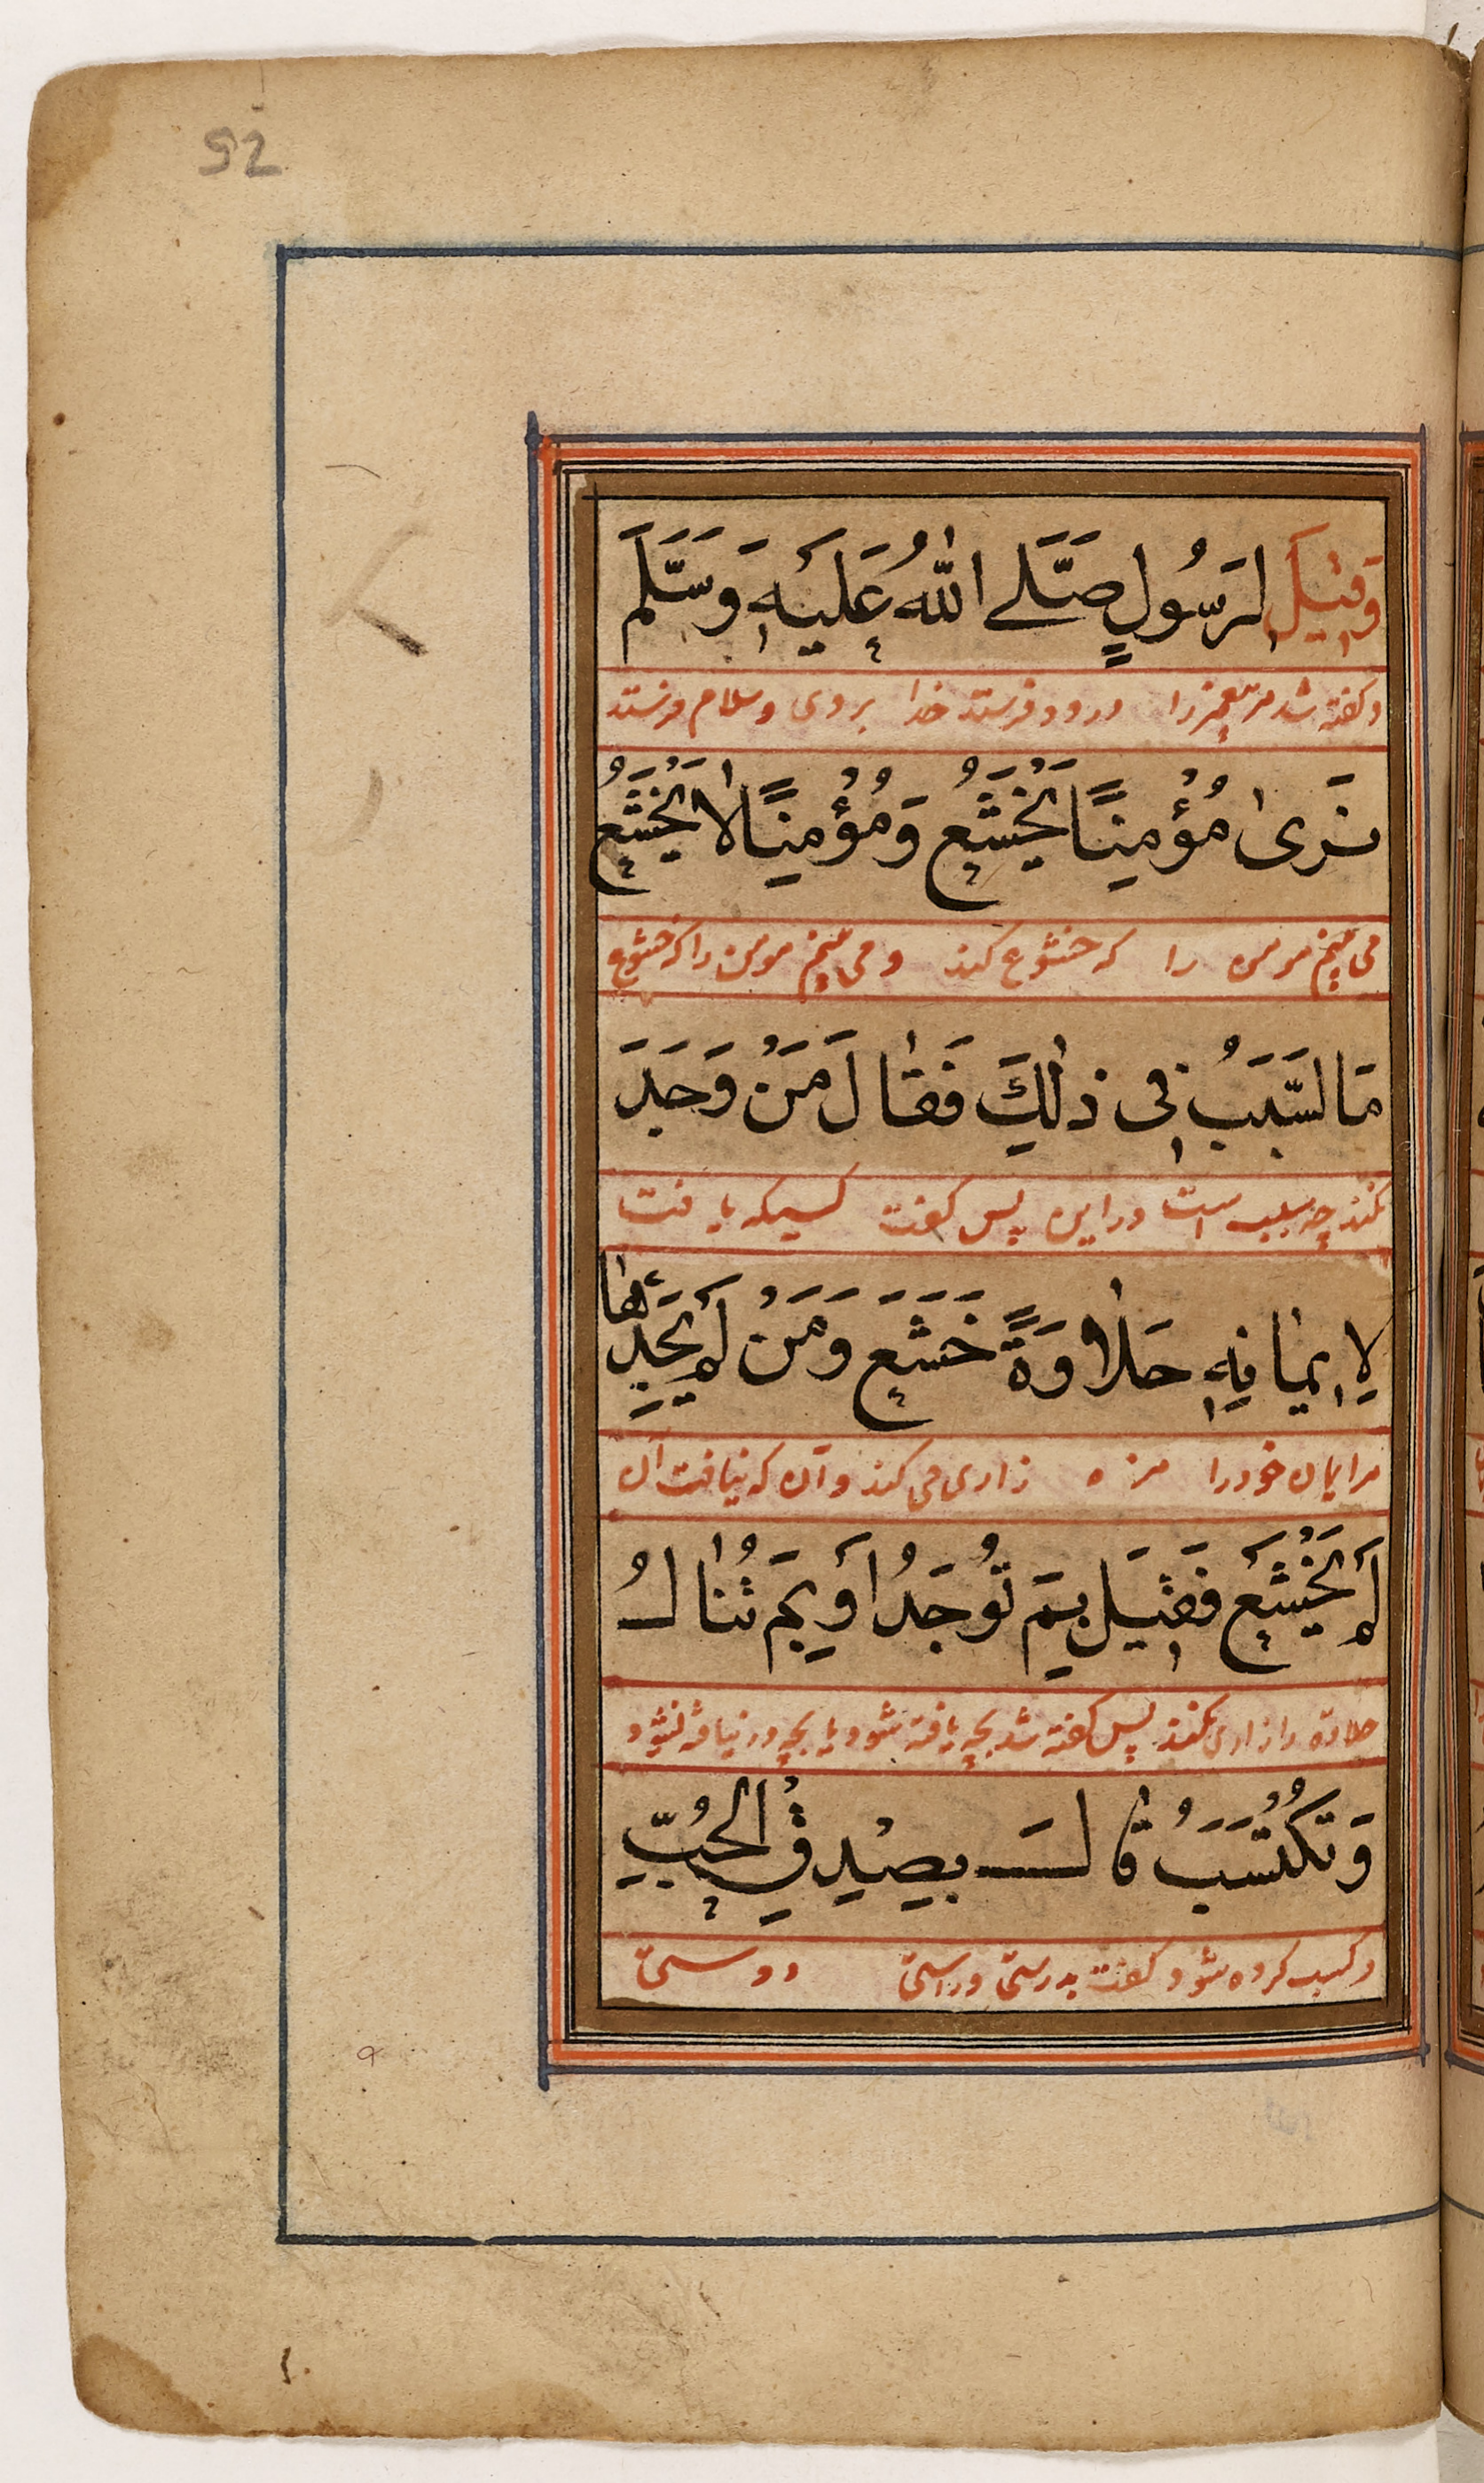 52
وَقِيْلَ لِرَسُولٍ صَلَّى اللهُ عَلَيْهِ وَسَلَّمَ
و گفته شد مر پیغمبر را درود فرستد خدا بر وی و سلام فرستد
نَرٰى مُؤْمِنًا يَخْشَعُ وَمُؤْمِنًا لَا يَخْشَعُ
می بینم مومن را که خشوع کند و می بینم مومن را که خشوع
مَا السَّبَبُ فِى ذٰلِكَ فَقَالَ مَنْ وَجَدَ
نکند چه سبب است در این پس گفت کسیکه یافت
لِاِيمَانِهِ حَلَاوَةً خَشَعَ وَمَنْ لَمْ يَجِدْهَا
مر ایمان خود را مزه زاری می کند و آن که نیافت آن
لَمْ يَخْشَعْ فَقِيْلَ بِمَ تُوجَدُ أَوْ بِمَ تُنَالُ
حلاوة را زاری نکند پس گفته شد بچه یافته شود یا بچه
وَتُكْتَسَبُ قَالَ بِصِدْقِ الْحُبِّ
و کسب کرده شود گفت بدرستی و راستی دوستی